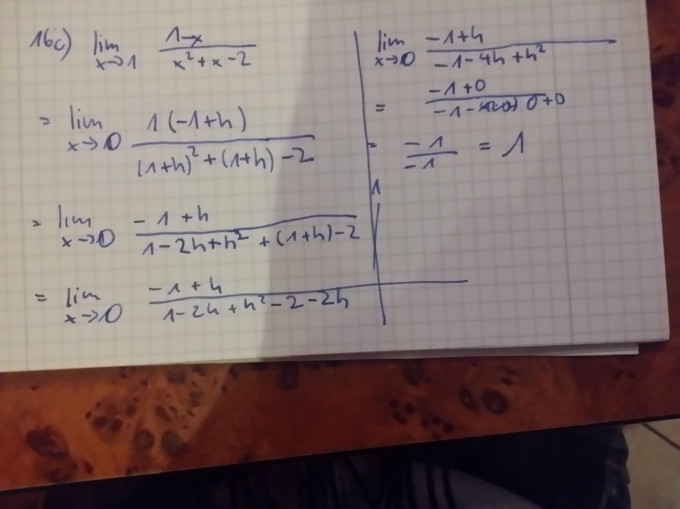 16c) lim x→1 1-x / x² + x - 2
= lim x→0 1(-1+h) / (1+h)² + (1+h) - 2
= lim x→0 -1+h / 1-2h+h² + (1+h)-2
= lim x→0 -1+h / 1-2h+h²-2-2h
lim x→0 -1+h / -1-4h+h²
= -1+0 / -1- 0+0
= -1 / -1 = 1
1